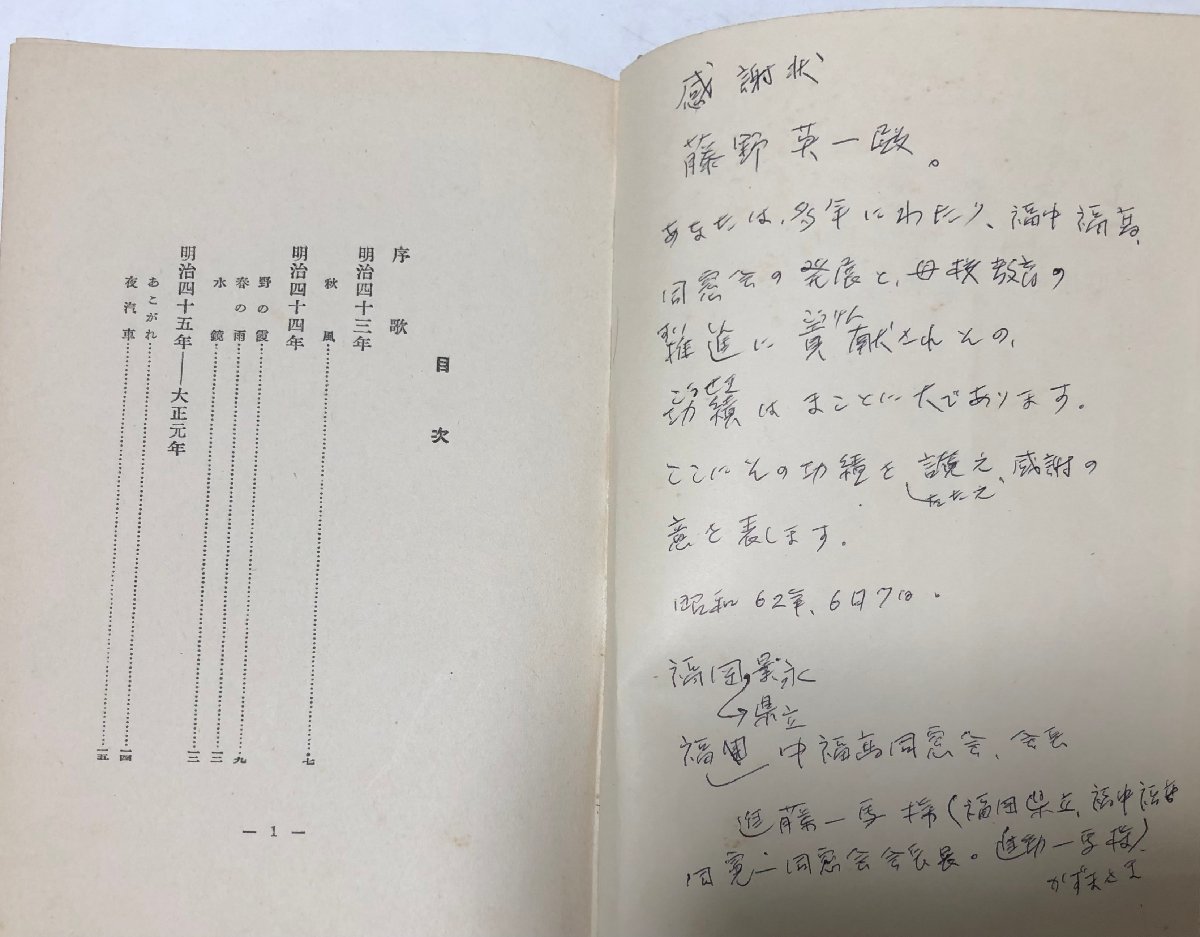 目次
序歌
明治四十三年
秋風……七
明治四十四年
野の霞……九
春の雨……三
水鏡……三
明治四十五年――大正元年
あこがれ……一四
夜汽車……一五
― 1 ―
感謝状
藤野英一殿。
あなたは、多年にわたり、福中福高、
同窓会の発展と、母校教育の
推進に貢献されその、
こうけん
こうせき
功績はまことに大であります。
ここにその功績を讃え、感謝の
たたえ
意を表します。
昭和62年、6月7日。
福岡
県立
福 中福高同窓会、会長
進藤一馬様(福岡県立、福中福高
同窓会会長 進藤一馬様)
かずまさま